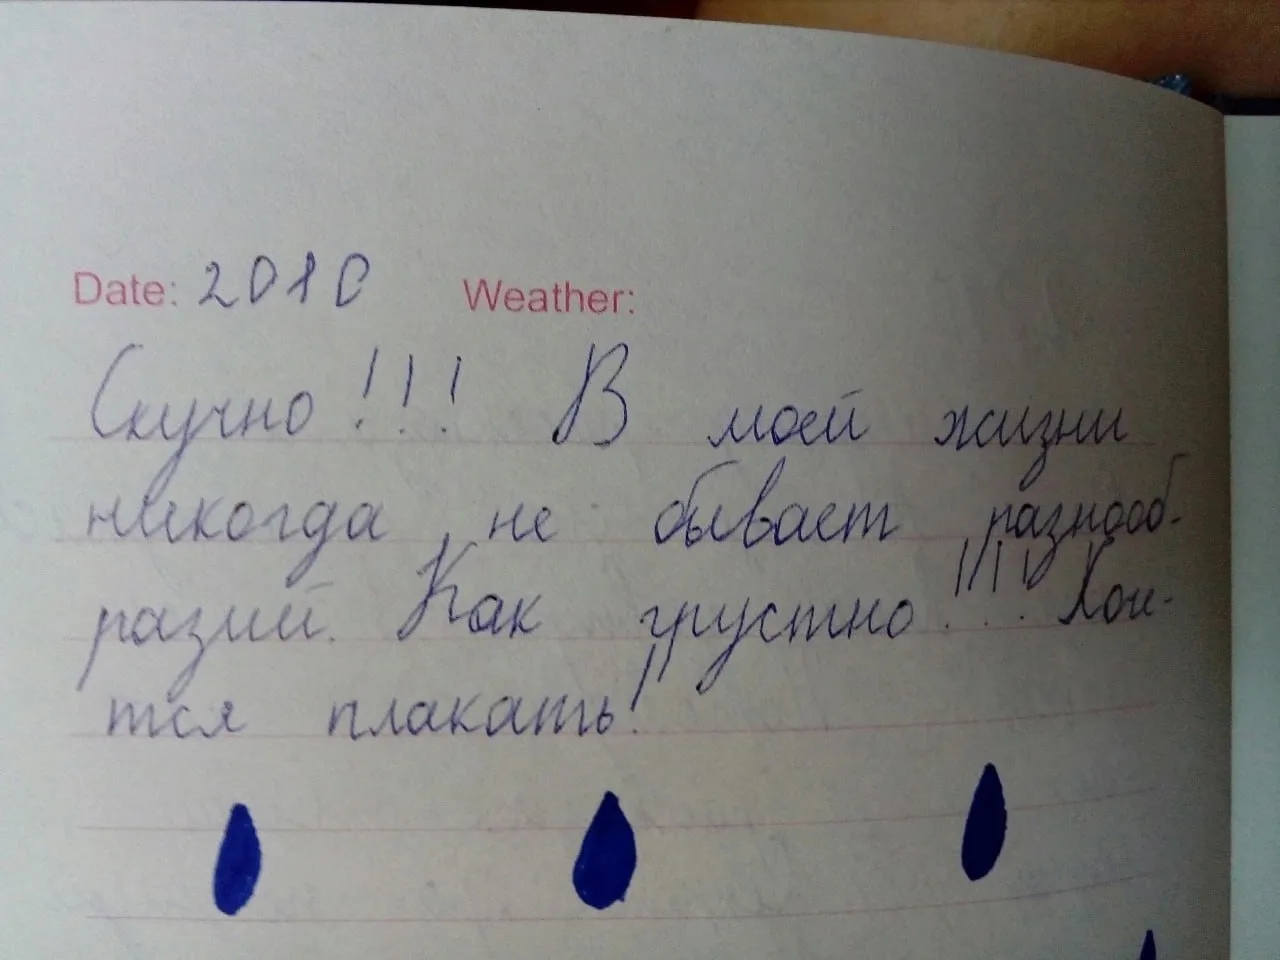 Date: 2010 Weather:
Скучно!!! В моей жизни
никогда не бывает разнооб-
разий. Как грустно!!! Хоч-
тся плакать!